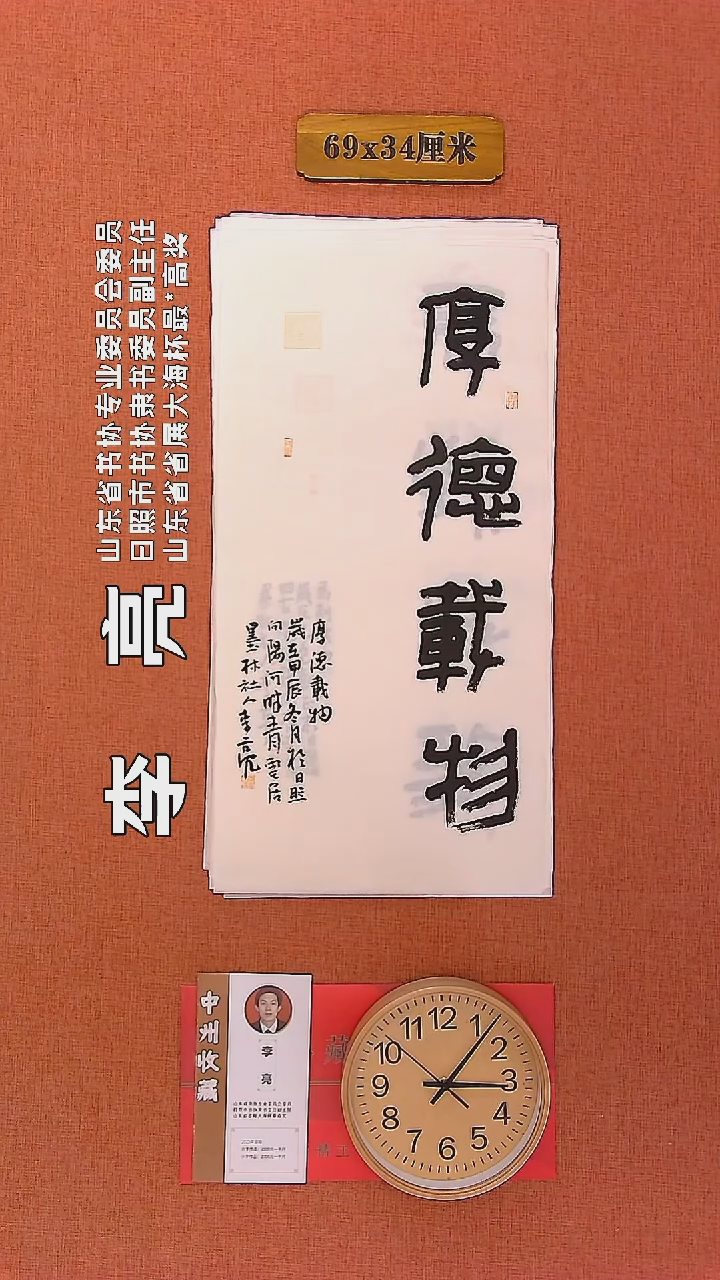 69x34厘米
山东省书协专业委员会委员
日照市书协隶书委员副主任
山东省省展大海杯最*高奖
李 亮
厚德载物
厚德载物
岁在甲辰冬月于日照
向阳河畔青云居
墨林社人李亮
中洲收藏
李
亮
藏
精工
12
1
2
3
4
5
6
7
8
9
10
11